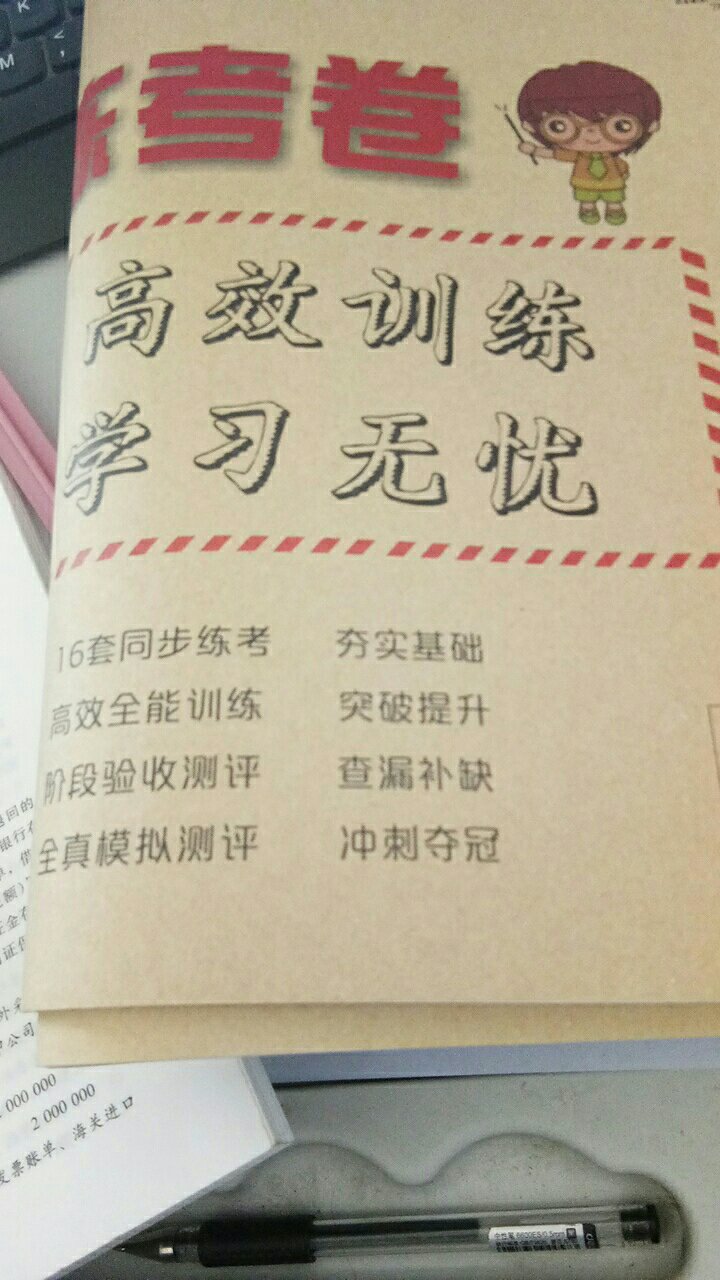 考卷
高效训练
学习无忧
16套同步练考 夯实基础
高效全能训练 突破提升
阶段验收测评 查漏补缺
全真模拟测评 冲刺夺冠
000 000
2 000 000
发票账单、海关进口
K
M